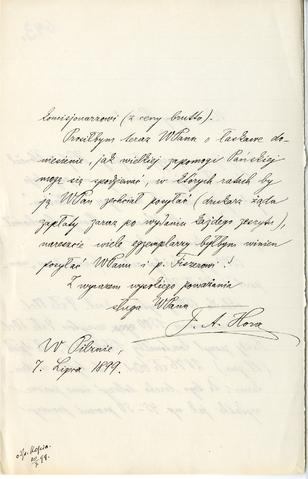 komisjonarzowi (z ceny brutto).
Prosiłbym teraz WPana o łaskawe do-
niesienie, jak wielkiej zapomogi Pańskiej
mogę się spodziewać, w których ratach by
ją WPan zechciał posyłać (drukarz żąda
zapłaty zaraz po wydaniu każdego zeszytu),
nareszcie wiele egzemplarzy byłbym winien
posyłać WPanu i p. Fiszerowi!
Z wyrazem wysokiego poważania
sługa WPana
F. A. Hora
W Pilznie,
7. Lipca 1899.